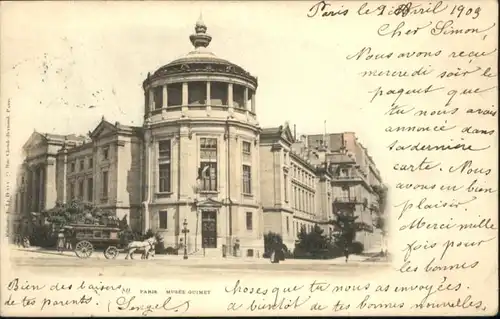 Paris le 2 Avril 1903
Cher Simon,
Nous avons reçu
mercredi soir le
paquet que
tu nous avais
annoncé dans
ta dernière
carte. Nous
avons en bien
plaisir.
Merci mille
fois pour
les bonnes
choses que tu nous as envoyées.
à bientôt de tes bonnes nouvelles.
Bien des baisers
de tes parents.
PARIS MUSÉE GUIMET